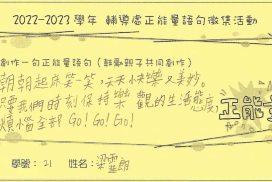 2022-2023 學年 輔導處正能量語句徵集活動
創作一句正能量語句（鼓勵親子共同創作）
朝朝起床笑一笑，天天快樂又美妙。
要我們時刻保持樂觀的生活態度
煩惱全部 Go! Go! Go!
正能
學號： 21 姓名：梁 朗